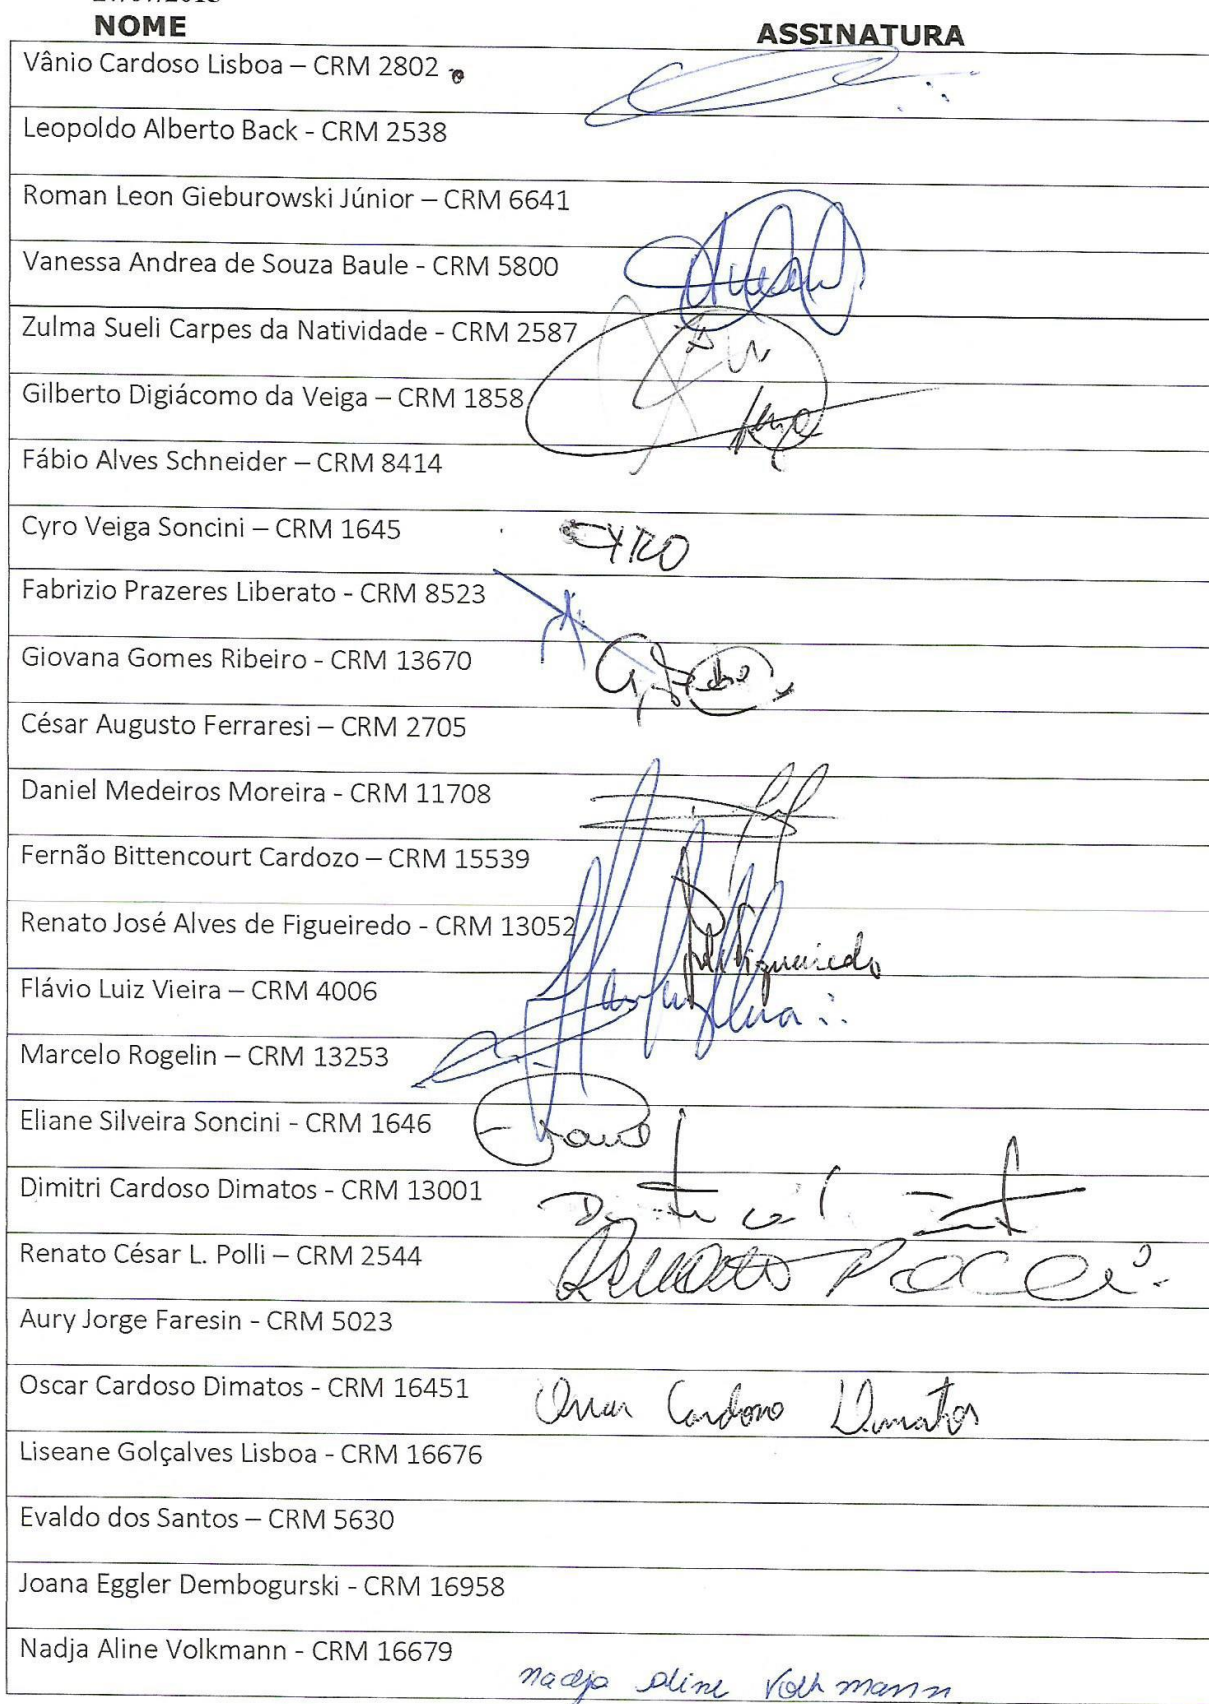 NOME ASSINATURA
Vânio Cardoso Lisboa – CRM 2802
Leopoldo Alberto Back - CRM 2538
Roman Leon Gieburowski Júnior – CRM 6641
Vanessa Andrea de Souza Baule - CRM 5800
Zulma Sueli Carpes da Natividade - CRM 2587
Gilberto Digiácomo da Veiga – CRM 1858
Fábio Alves Schneider – CRM 8414
Cyro Veiga Soncini – CRM 1645 CYRO
Fabrizio Prazeres Liberato - CRM 8523
Giovana Gomes Ribeiro - CRM 13670
César Augusto Ferraresi – CRM 2705
Daniel Medeiros Moreira - CRM 11708
Fernão Bittencourt Cardozo – CRM 15539
Renato José Alves de Figueiredo - CRM 13052 Figueiredo
Flávio Luiz Vieira – CRM 4006
Marcelo Rogelin – CRM 13253
Eliane Silveira Soncini - CRM 1646
Dimitri Cardoso Dimatos - CRM 13001
Renato César L. Polli – CRM 2544 Renato Polli
Aury Jorge Faresin - CRM 5023
Oscar Cardoso Dimatos - CRM 16451 Oscar Cardoso Dimatos
Liseane Golçalves Lisboa - CRM 16676
Evaldo dos Santos – CRM 5630
Joana Eggler Dembogurski - CRM 16958
Nadja Aline Volkmann - CRM 16679
Nadja Aline Volkmann